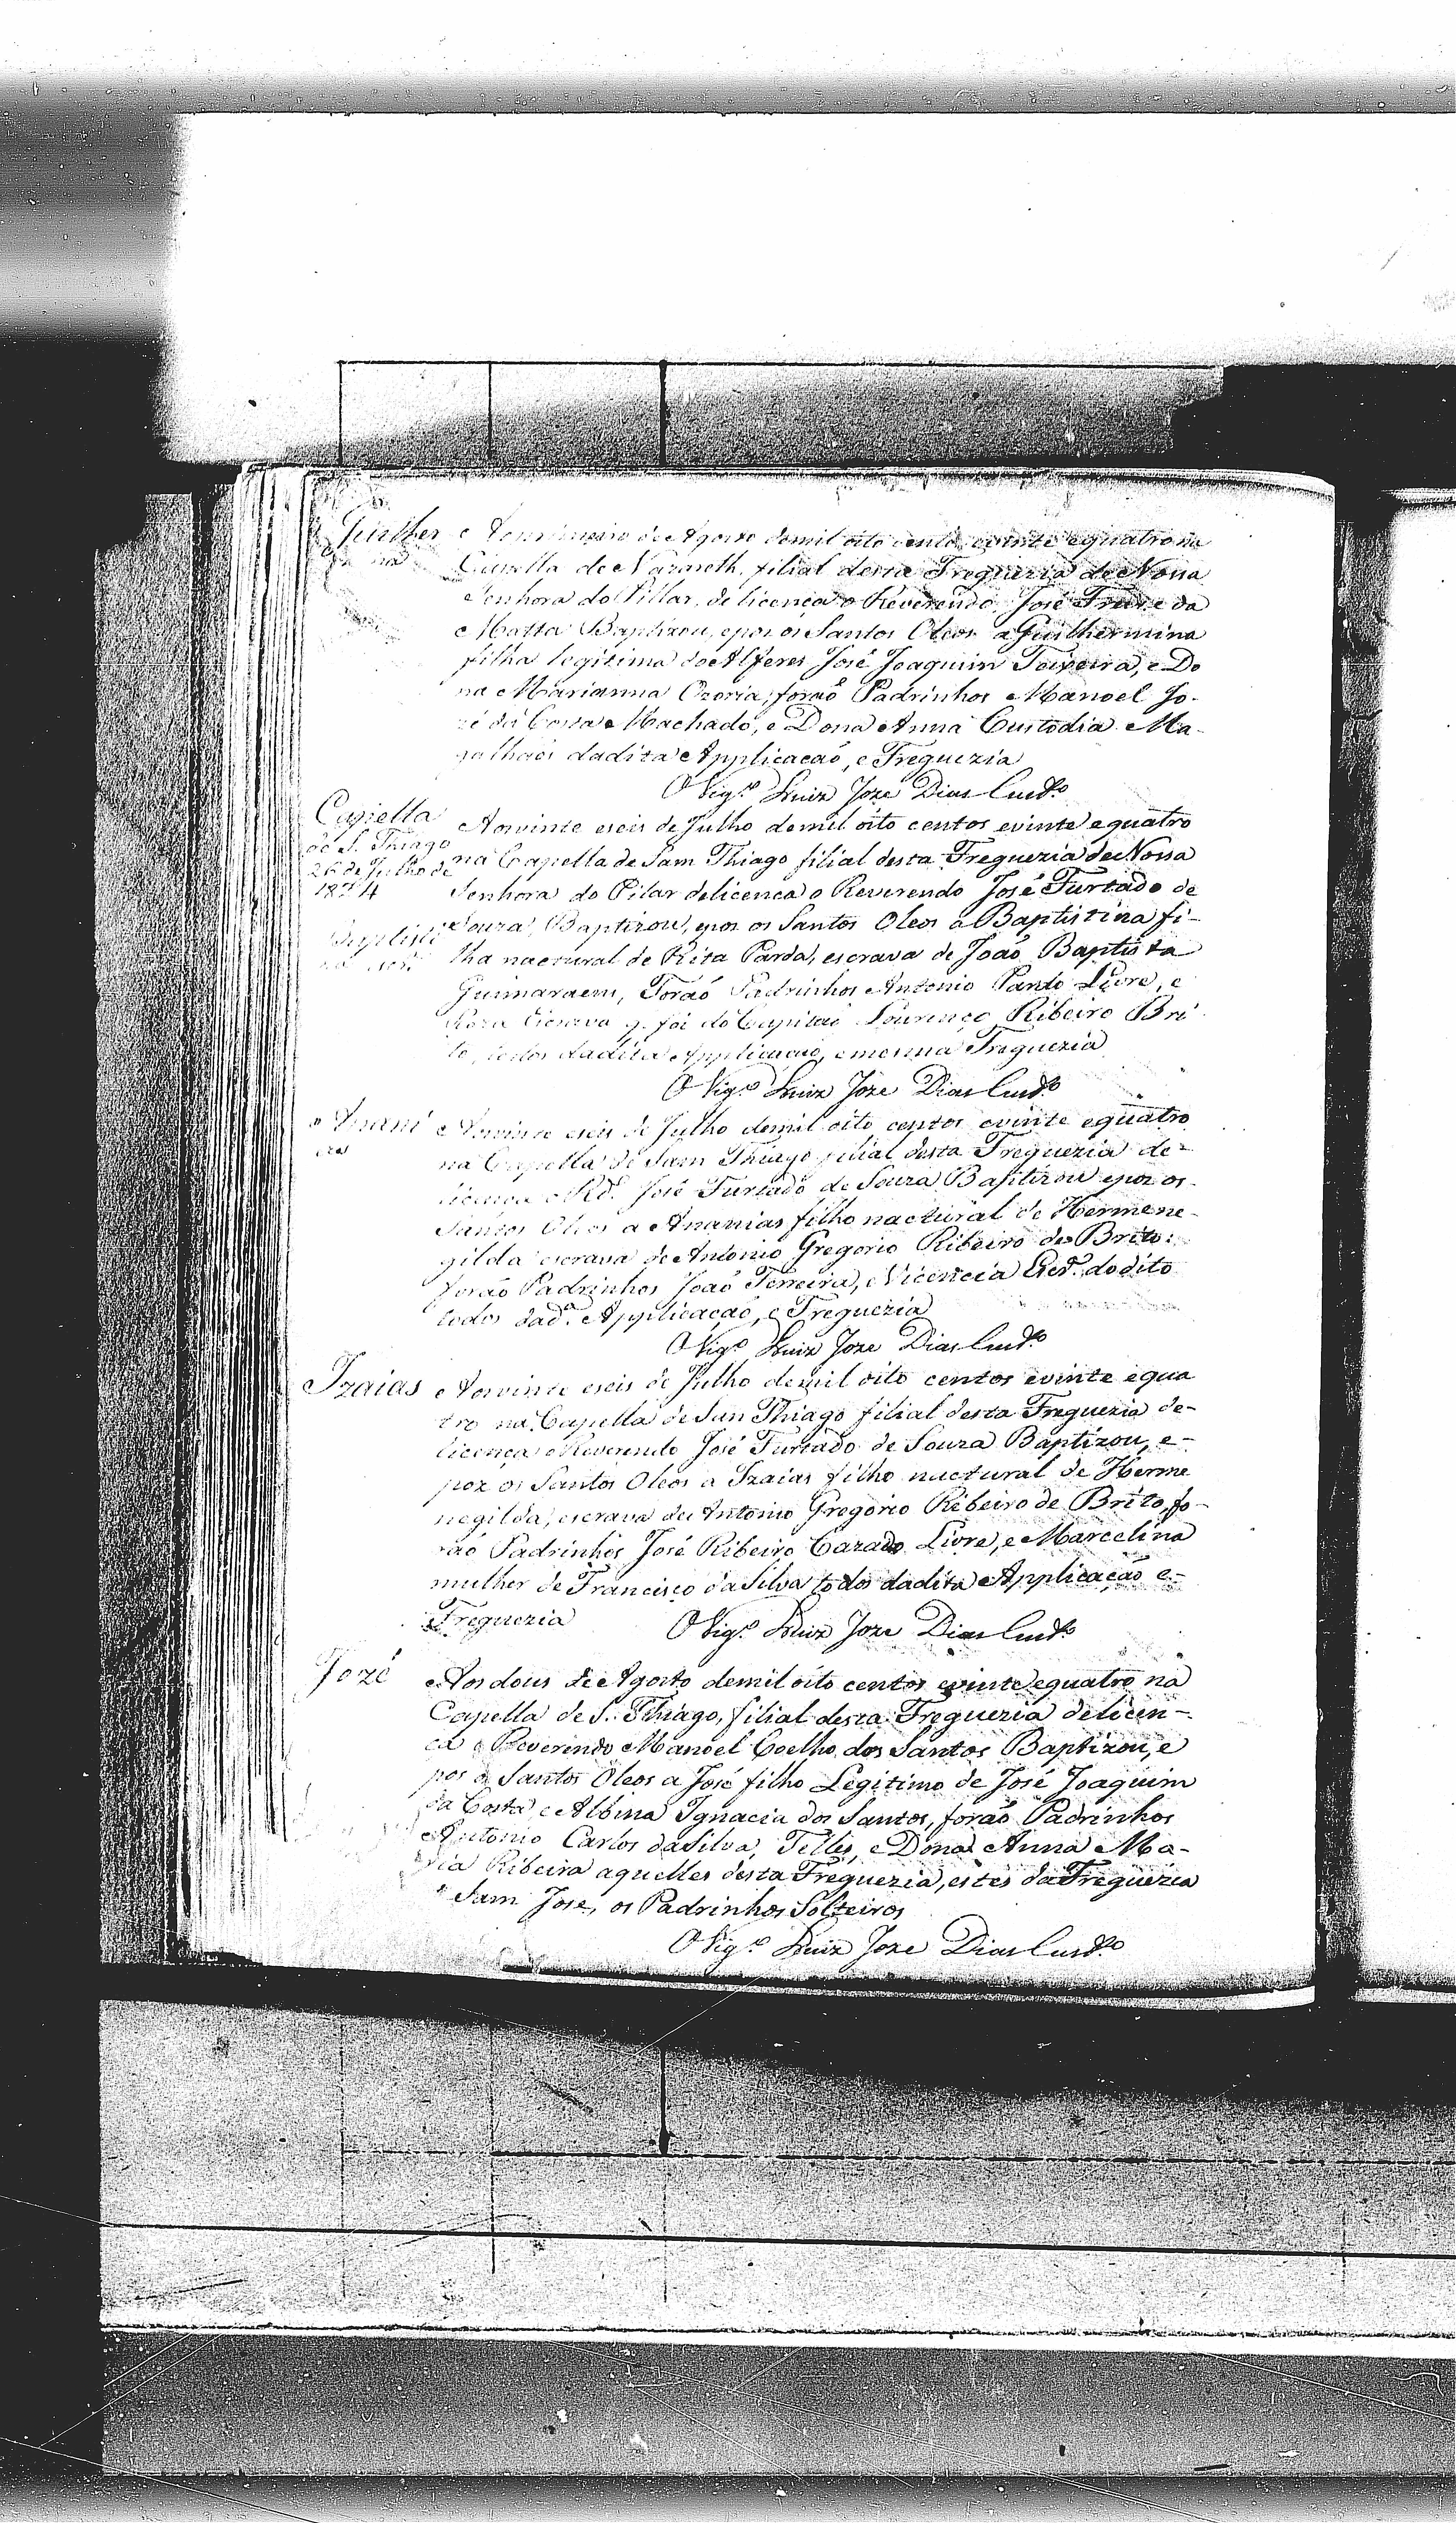 Guilher
na
Aoprimeiro de Agosto demil oito centos evinte equatro na
Capella de Nazareth filial desta Freguezia de Nossa
Senhora do Pillar, de licença o Reverendo José Freire da
Matta Baptizou, epoz os Santos Oleos a Guilhermina
filha legitima do Alferes José Joaquim Teixeira, e Do
na Marianna Ozoria, foraõ Padrinhos Manoel Jo-
zé da Costa Machado, e Dona Anna Custodia Ma-
galhaẽs dadita Applicacaõ, e Freguezia
O Vigr.º Luiz Joze Dias Cust.º
Capella
de S. Thiago
26 de Julho de
1824
Baptisti
na escr.
Aosvinte eseis de Julho demil oito centos evinte equatro
na Capella de Sam Thiago filial desta Freguezia de Nossa
Senhora do Pilar delicenca o Reverendo José Furtado de
Souza, Baptizou, epoz os Santos Oleos a Baptistina fi-
lha nactural de Rita Parda, escrava de Joaõ Baptista
Guimaraens, Foraõ Padrinhos Antonio Pardo Livre, e
Roza Escrava q. foi do Capitaõ Lourenço Ribeiro Bri
to, todos dadita Applicacaõ, emesma Freguezia
O Vigr.º Luiz Joze Dias Cust.º
Anani
as
Aosvinte eseis de Julho demil oito centos evinte equatro
na Capella de Sam Thiago filial desta Freguezia de-
licenca o Rd.º José Furtado de Souza Baptizou epoz os
Santos Oleos a Ananias filho nactural de Hermene-
gilda escrava de Antonio Gregorio Ribeiro de Brito:
foraõ Padrinhos Joaõ Ferreira, e Vicencia Escr.ª dodito
todos dad.ª Applicaçaõ, e Freguezia
O Vigr.º Luiz Joze Dias Cust.º
Izaias
Aosvinte eseis de Julho demil oito centos evinte equa
tro na Capella de San Thiago filial desta Freguezia de-
licença o Reverendo José Furtado de Souza Baptizou, e-
poz os Santos Oleos a Izaias filho nactural de Herme
negilda, escrava de Antonio Gregorio Ribeiro de Brito, fo-
raõ Padrinhos José Ribeiro Cazado Livre, e Marcelina
mulher de Francisco da Silva todos dadita Applicaçaõ e-
Freguezia
O Vigr.º Luiz Joze Dias Cust.º
Jozé
Aos dous de Agosto demil oito centos evinte equatro na
Capella de S. Thiago, filial desta Freguezia delicen-
ca o Reverendo Manoel Coelho dos Santos Baptizou, e
pos os Santos Oleos a José filho Legitimo de José Joaquim
da Costa e Albina Ignacia dos Santos, foraõ Padrinhos
Antonio Carlos da Silva, Telles, e Dona Anna Ma-
ria Ribeira aquelles desta Freguezia, estes da Freguezia
Sam Jose, os Padrinhos Solteiros
O Vigr.º Luiz Joze Dias Cust.º